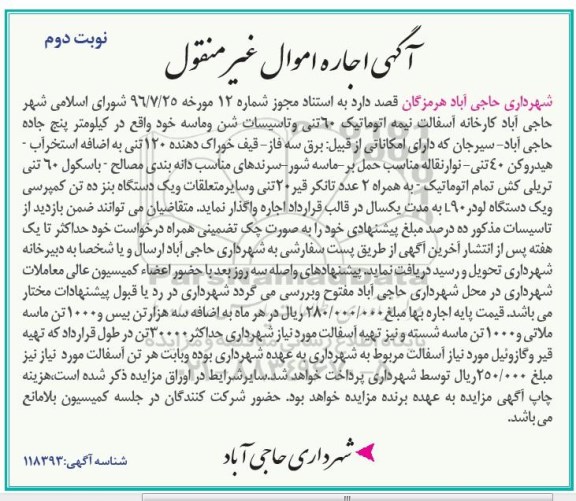 نوبت دوم
آگهی اجاره اموال غیر منقول
شهرداری حاجی آباد هرمزگان قصد دارد به استناد مجوز شماره ۱۲ مورخه ۹۶/۷/۲۵ شورای اسلامی شهر
حاجی آباد کارخانه آسفالت نیمه اتوماتیک ۶۰تنی وتاسیسات شن وماسه خود واقع در کیلومتر پنج جاده
حاجی آباد- سیرجان که دارای امکاناتی از قبیل: برق سه فاز- قیف خوراک دهنده ۱۲۰تنی به اضافه استخرآب -
هیدروکن ۴۰تنی- نوارنقاله مناسب حمل بر-ماسه شور-سرندهای مناسب دانه بندی مصالح - باسکول ۶۰ تنی
تریلی کش تمام اتوماتیک - به همراه ۲ عدد تانکر قیر۲۰تنی وسایرمتعلقات ویک دستگاه بنز ده تن کمپرسی
ویک دستگاه لودرL۹۰ به مدت یکسال در قالب قرارداد اجاره واگذار نماید. متقاضیان می توانند ضمن بازدید از
تاسیسات مذکور ده درصد مبلغ پیشنهادی خود را به صورت چک تضمینی همراه درخواست خود حداکثر تا یک
هفته پس از انتشار آخرین آگهی از طریق پست سفارشی به شهرداری حاجی آباد ارسال و یا شخصا به دبیرخانه
شهرداری تحویل و رسید دریافت نماید. پیشنهادهای واصله سه روز بعد با حضور اعضاء کمیسیون عالی معاملات
شهرداری در محل شهرداری حاجی آباد مفتوح وبررسی می گردد شهرداری در رد یا قبول پیشنهادات مختار
می باشد. قیمت پایه اجاره بها مبلغ ۲۸۰/۰۰۰/۰۰۰ ریال در هر ماه به اضافه سه هزار تن بیس و۱۰۰۰تن ماسه
ملاتی و۱۰۰۰تن ماسه شسته و نیز تهیه آسفالت مورد نیاز شهرداری حداکثر ۳۰۰۰۰تن در طول قرارداد که تهیه
قیر وگازوئیل مورد نیاز آسفالت مربوط به شهرداری به عهده شهرداری بوده وبابت هر تن آسفالت مورد نیاز نیز
مبلغ ۲۵۰/۰۰۰ریال توسط شهرداری پرداخت خواهد شد.سایرشرایط در اوراق مزایده ذکر شده است،هزینه
چاپ آگهی مزایده به عهده برنده مزایده خواهد بود. حضور شرکت کنندگان در جلسه کمیسیون بلامانع
می باشد.
شهرداری حاجی آباد
شناسه آگهی:۱۱۸۳۹۳